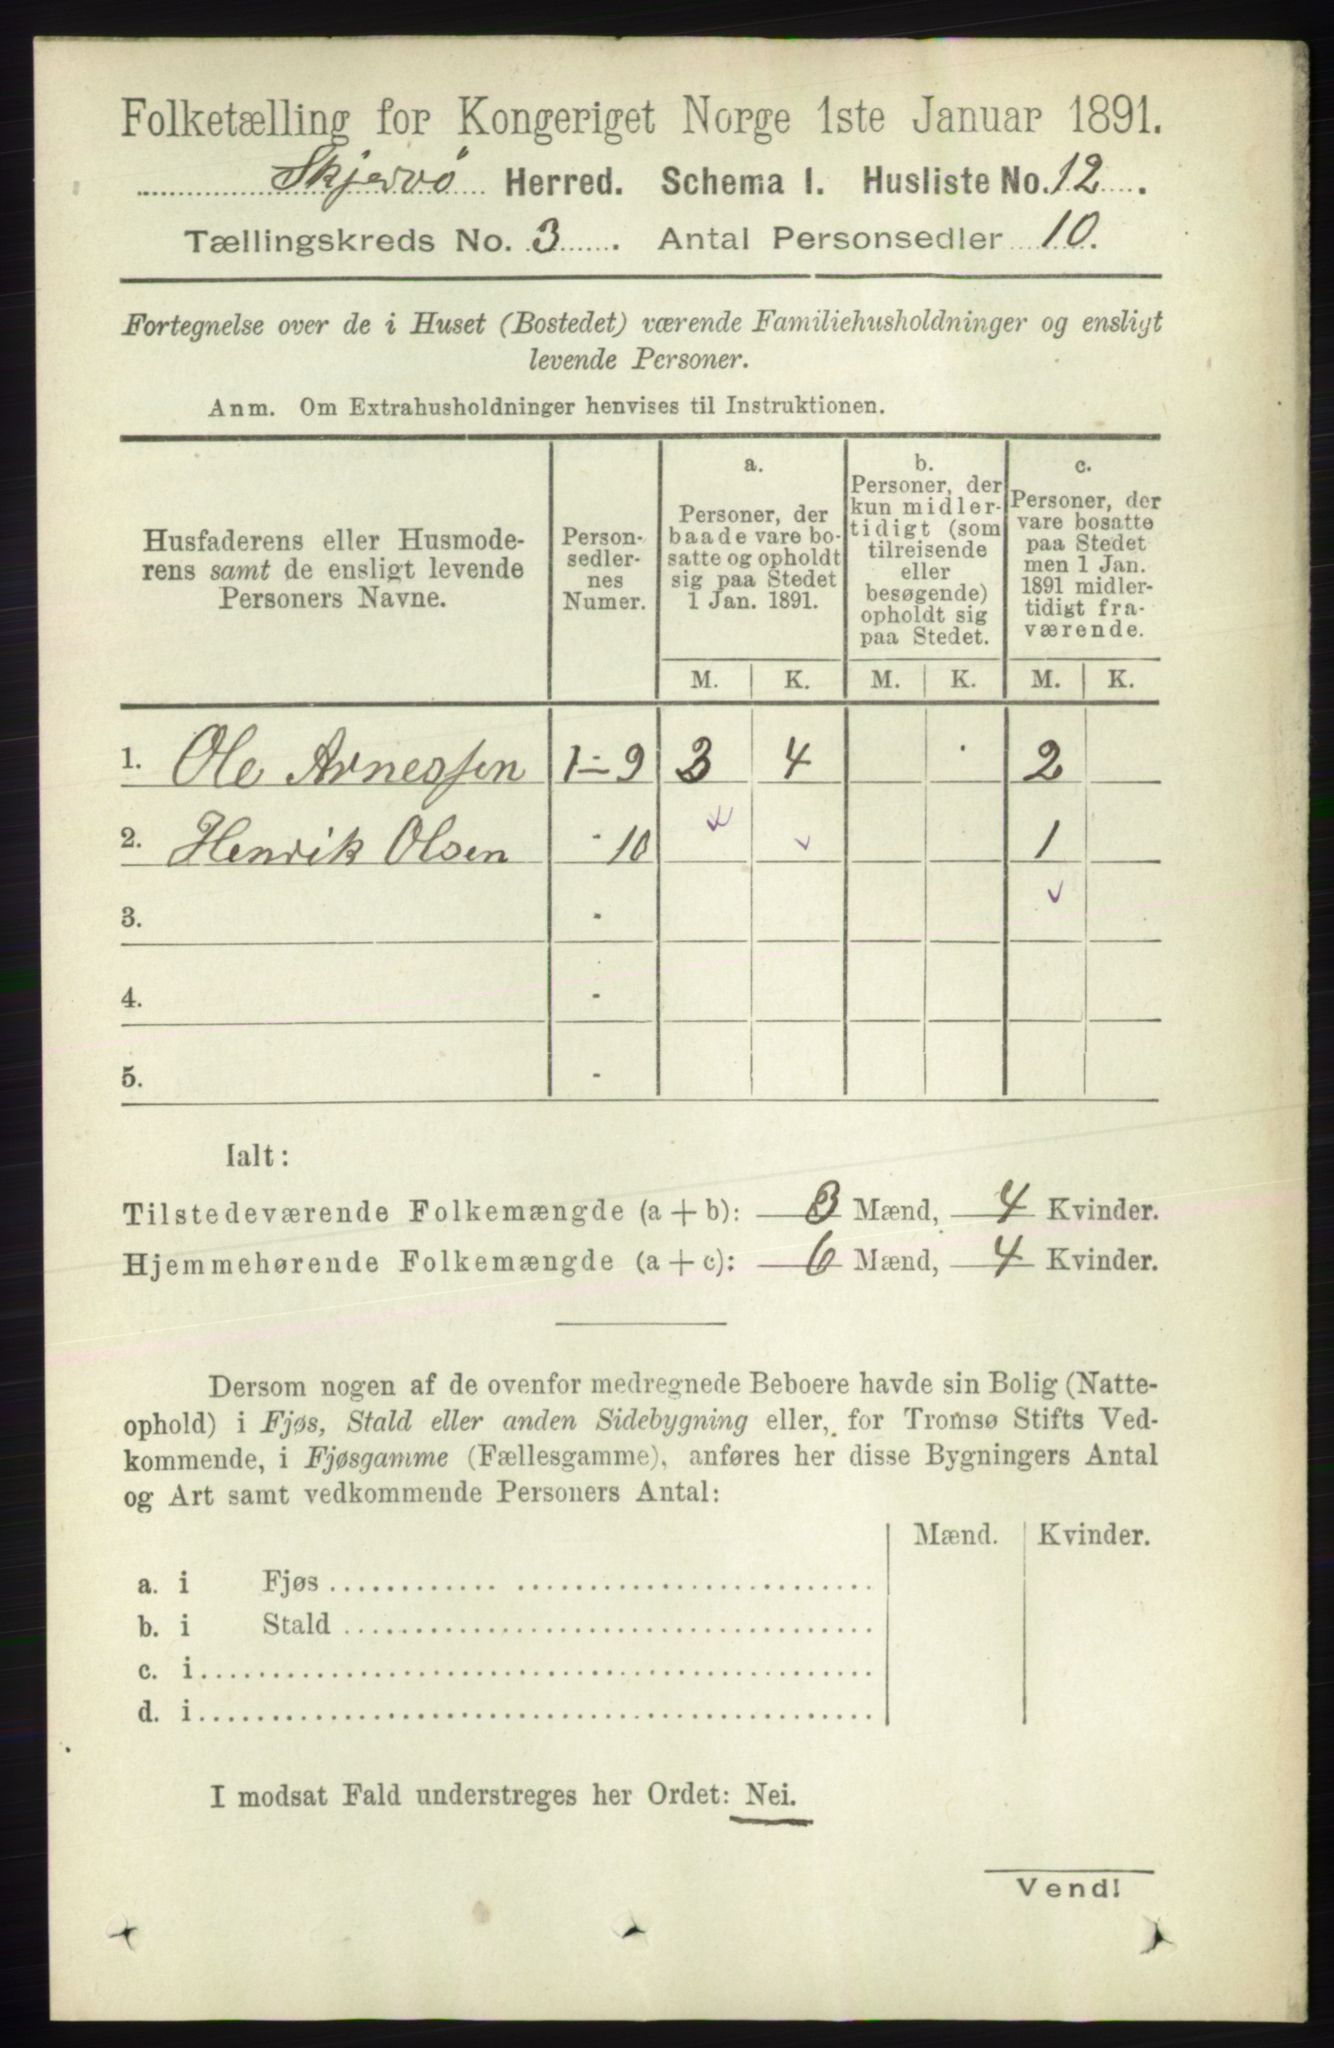 Folketælling for Kongeriget Norge 1ste Januar 1891.
Skjervö Herred. Schema I. Husliste No. 12.
Tællingskreds No. 3. Antal Personsedler 10.
Fortegnelse over de i Huset (Bostedet) værende Familiehusholdninger og ensligt
levende Personer.
Anm. Om Extrahusholdninger henvises til Instruktionen.
Husfaderens eller Husmode-
rens samt de ensligt levende
Personers Navne.
Person-
sedler-
nes
Numer.
a.
Personer, der
baade vare bo-
satte og opholdt
sig paa Stedet
1 Jan. 1891.
b.
Personer, der
kun midler-
tidigt (som
tilreisende
eller
besøgende)
opholdt sig
paa Stedet.
c.
Personer, der
vare bosatte
paa Stedet
men 1 Jan.
1891 midler-
tidigt fra-
værende.
M. K. M. K. M. K.
1. Ole Arnessen 1-9 3 4 2
2. Henrik Olsen - 10 1
3. -
4. -
5. -
Ialt:
Tilstedeværende Folkemængde (a + b): 3 Mænd, 4 Kvinder.
Hjemmehørende Folkemængde (a + c): 6 Mænd, 4 Kvinder.
Dersom nogen af de ovenfor medregnede Beboere havde sin Bolig (Natte-
ophold) i Fjøs, Stald eller anden Sidebygning eller, for Tromsø Stifts Ved-
kommende, i Fjøsgamme (Fællesgamme), anføres her disse Bygningers Antal
og Art samt vedkommende Personers Antal:
Mænd. Kvinder.
a. i Fjøs
b. i Stald
c. i
d. i
I modsat Fald understreges her Ordet: Nei.
Vend!